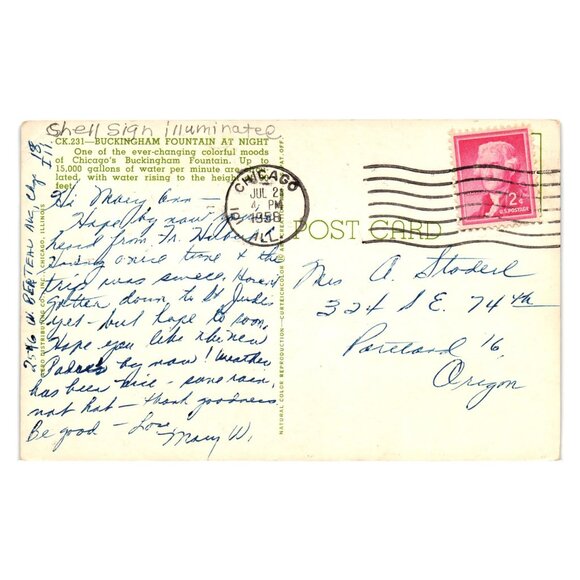 Shell sign illuminated
CK.231—BUCKINGHAM FOUNTAIN AT NIGHT
One of the ever-changing colorful moods
of Chicago's Buckingham Fountain. Up to
15,000 gallons of water per minute are
lated, with water rising to the height
feet.
Hi Mary Ann —
Hope by now you've
heard from Fr. 
Having a nice time & the
trip was swell. Haven't
gotten down to St Jude's
yet — but hope to soon.
Hope you like the new
Padres by now! Weather
has been nice — some rain,
not hot — thank goodness
Be good — Love
Mary W.
2546 W. BERTEAU AVE, Chgo 18,
Ill.
CHICAGO, ILLINOIS
NATURAL COLOR REPRODUCTION—CURTEICHCOLOR
CHICAGO
JUL 2
PM
1958
ILL.
2¢
U.S. POSTAGE
POST CARD
Mrs A. Stoderl
324 S E. 74th
Portland 16,
Oregon